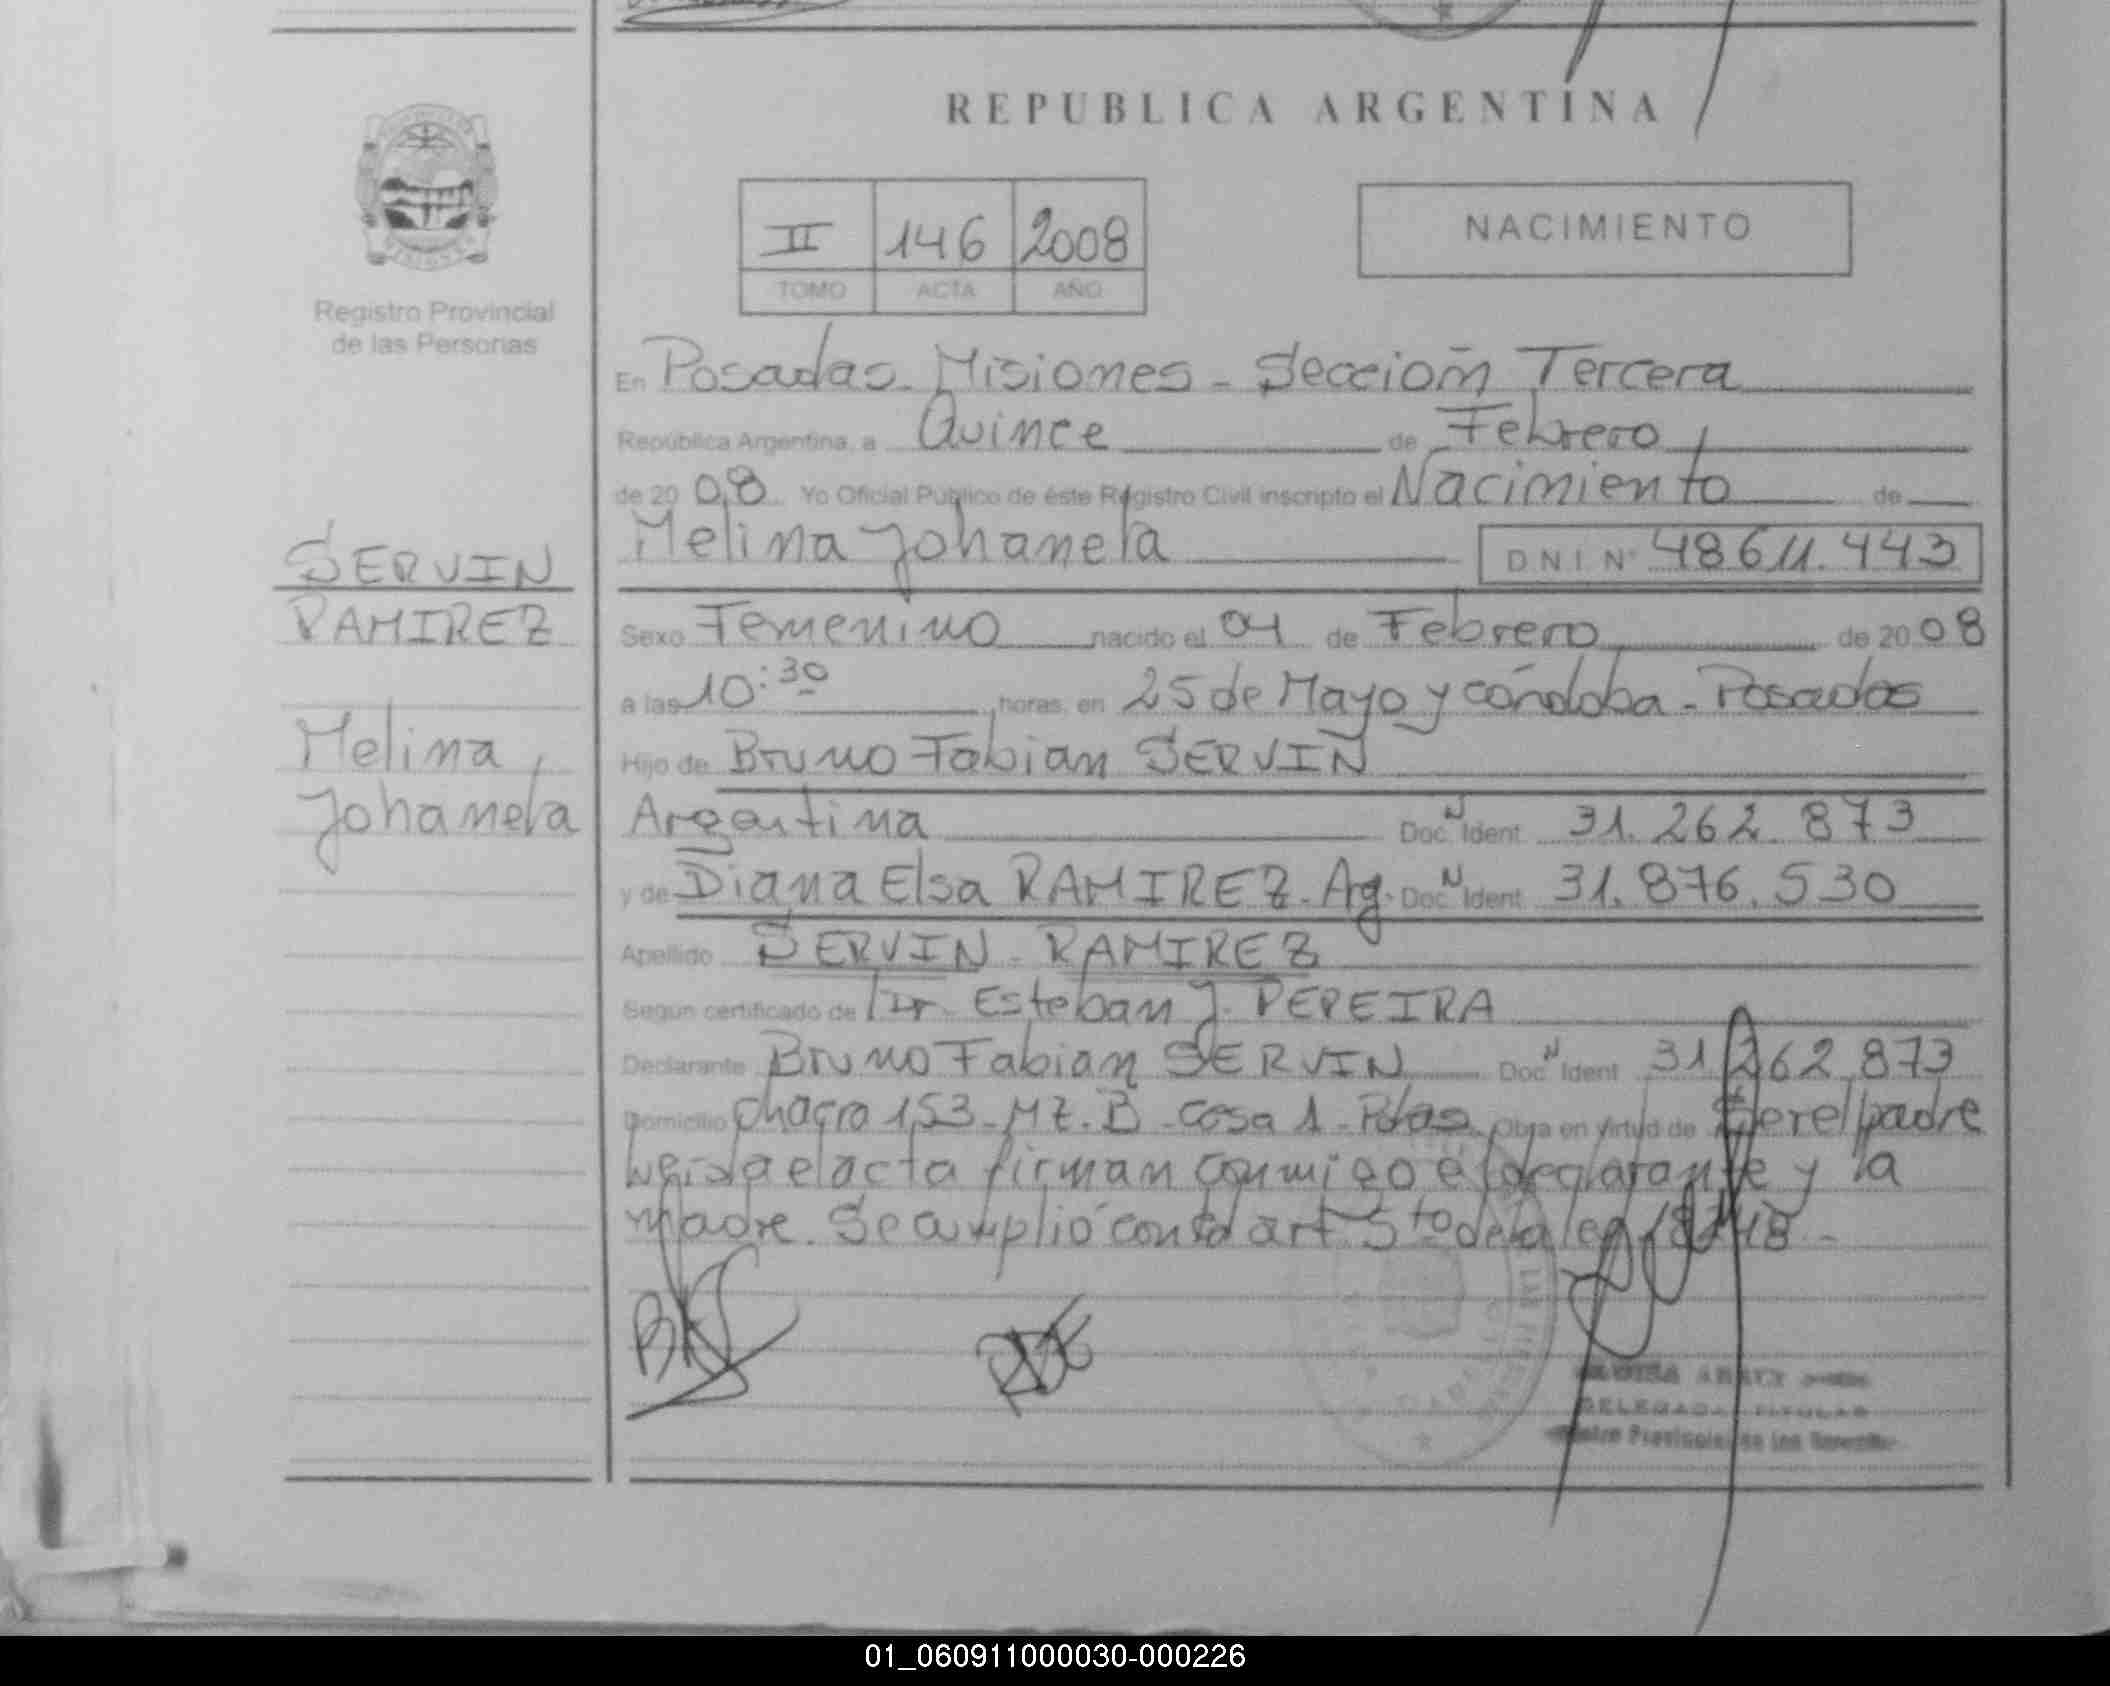 REPUBLICA ARGENTINA
II 146 2008
TOMO ACTA AÑO
NACIMIENTO
Registro Provincial
de las Personas
En Posadas Misiones - Sección Tercera
República Argentina, a Quince de Febrero
de 2008 Yo Oficial Público de éste Registro Civil inscripto el Nacimiento de
Melina Johanela D N I N° 48611.443
SERVIN
RAMIREZ
Melina
Johanela
Sexo Femenino nacido el 04 de Febrero de 2008
a las 10:30 horas, en 25 de Mayo y córdoba - Posadas
Hijo de Bruno Fabian SERVIN
Argentina Doc. N Ident 31.262.873
y de Diana Elsa RAMIREZ. Ag. Doc. N Ident 31.876.530
Apellido SERVIN - RAMIREZ
Segun certificado de Dr. Esteban J. PEREIRA
Declarante Bruno Fabian SERVIN Doc. N Ident 31.262.873
Domicilio chacra 153 - MZ. B - casa 1 - Pdas Obra en virtud de Ser el padre
Leida el acta firman conmigo el declarante y la
madre. Se cumplió con el art 5to de la ley 18248 -
DELEGADA TITULAR
01_060911000030-000226